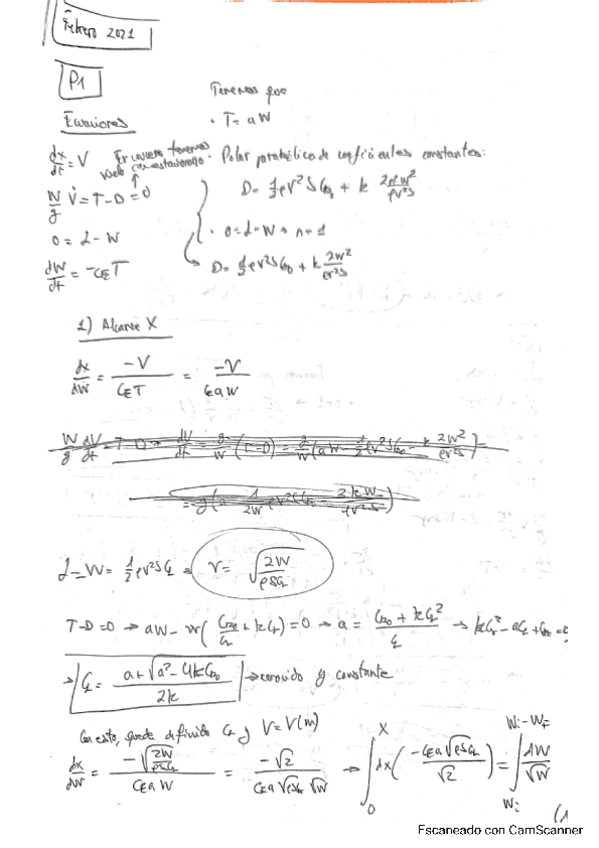 Febrero 2021
P1
Tenemos que
Ecuaciones
· T = aW
dx/dt = V
En crucero tenemos
· Polar parabólica de coeficientes constantes:
W/g V̇ = T - D = 0
D = 1/2 ρV²S C_D0 + k 2n²W²/ρV²S
0 = L - W
· 0 = L - W → n = 1
dW/dt = -C_E T
D = 1/2 ρV²S C_D0 + k 2W²/ρV²S
1) Alcance X
dx/dW = -V/C_E T = -V/C_E aW
L = W = 1/2 ρV²S C_L → V = √(2W/ρS C_L)
T - D = 0 → aW - W(C_D0/C_L + kC_L) = 0 → a = (C_D0 + kC_L²)/C_L → kC_L² - aC_L + C_D0 = 0
→ C_L = (a + √(a² - 4kC_D0))/2k → conocido y constante
Con esto, queda definido C_L y V = V(m)
dx/dW = -√(2W/ρS C_L)/C_E aW = -√2/(C_E a √(ρS C_L) √W) → ∫₀^X dx (-C_E a √(ρS C_L)/√2) = ∫_{Wi}^{Wi - WF} dW/√W
(1
Escaneado con CamScanner